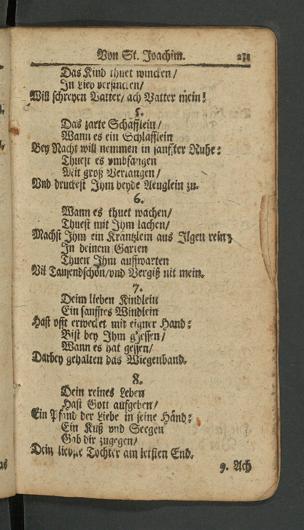 Von St. Joachim. 231
Das Kind thuet wincken/
In Lieb versincken/
Will schreyen Vatter/ ach Vatter mein!
5.
Das zarte Schäfflein/
Wann es ein Schläfflein
Bey Nacht will nemmen in sanffter Ruhe:
Thuest es vmbfangen
Mit groß Verlangen/
Vnd druckest Jhm beyde Aeuglein zu.
6.
Wann es thuet wachen/
Thuest mit Jhm lachen/
Machst Jhm ein Kräntzlein aus Jlgen rein/
In deinem Garten
Thuen Jhm auffwarten
Vil Tausendschön/ vnd Vergiß nit mein.
7.
Deim lieben Kindlein
Ein sanfftes Windlein
Hast offt erwecket mit eigner Hand:
Bist bey Jhm g'sessen/
Wann es hat gessen/
Darbey gehalten das Wiegenband.
8.
Dein reines Leben
Hast Gott aufgeben/
Ein Pfand der Liebe in seine Händ:
Ein Kuß vnd Seegen
Gab dir zugegen/
Dein liebste Tochter am letsten End.
9. Ach